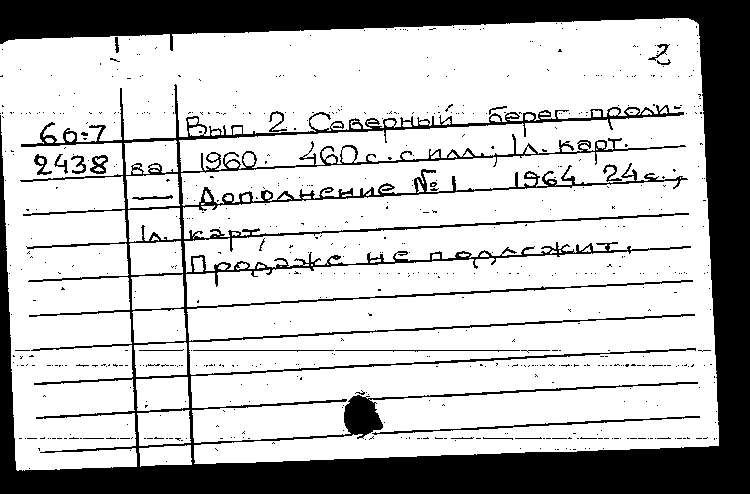 2
60:7 Вып. 2. Северный берег проли-
2438 ва. 1960. 460 с. с илл.; 1 л. карт.
— Дополнение № 1. 1964. 24 с.;
1 л. карт.
Продаже не подлежит.